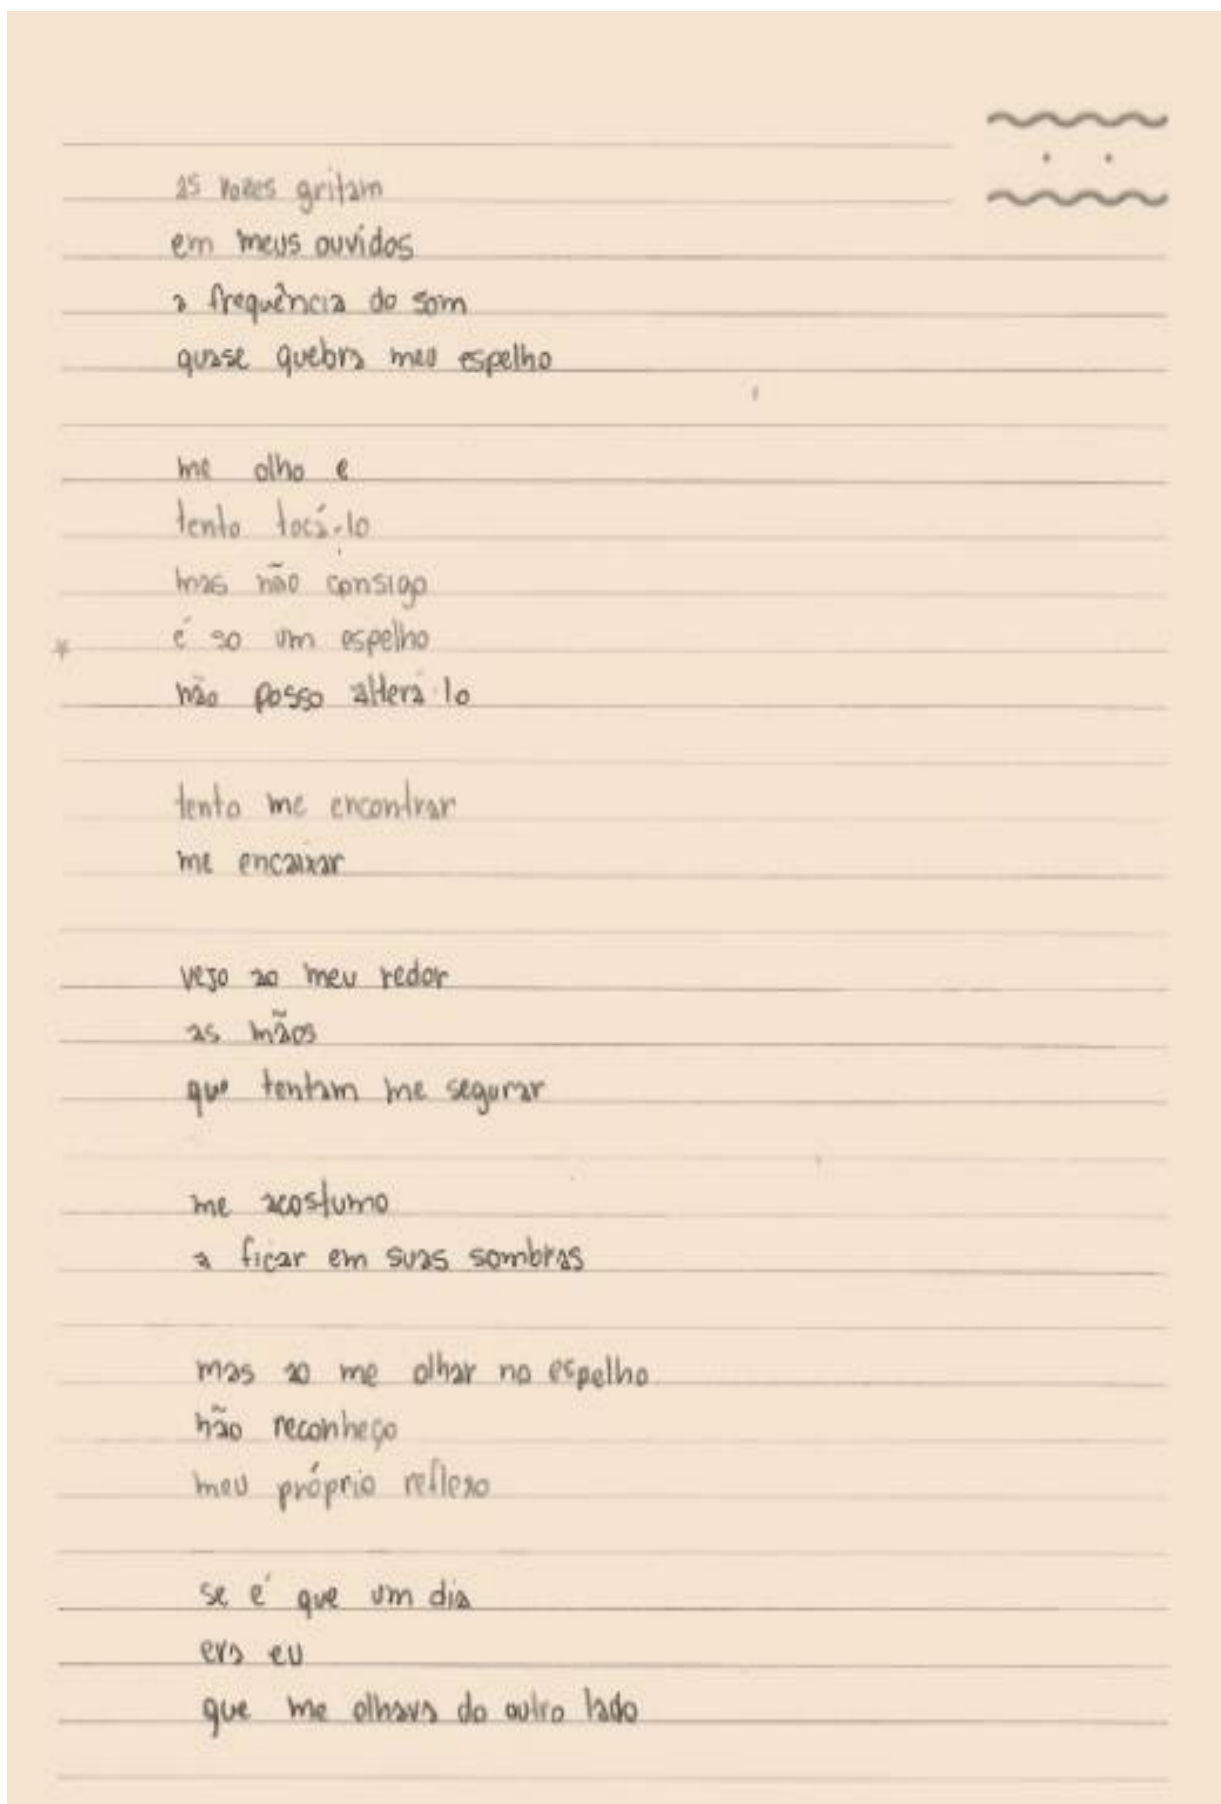 as vozes gritam
em meus ouvidos
a frequência do som
quase quebra meu espelho
me olho e
tento tocá-lo
mas não consigo
é so um espelho
não posso alterá-lo
tento me encontrar
me encaixar
vejo ao meu redor
as mãos
que tentam me segurar
me acostumo
a ficar em suas sombras
mas ao me olhar no espelho
não reconheço
meu próprio reflexo
se é que um dia
era eu
que me olhava do outro lado